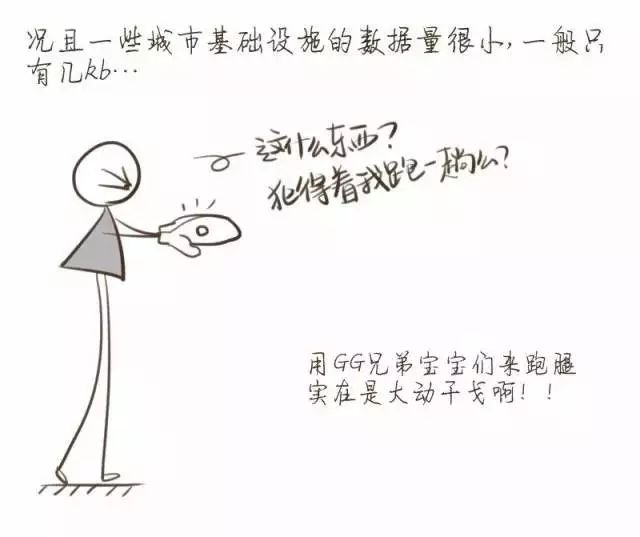 况且一些城市基础设施的数据量很小,一般只
有几kb…
这什么东西?
犯得着我跑一趟么?
用GG兄弟宝宝们来跑腿
实在是大动干戈啊!!